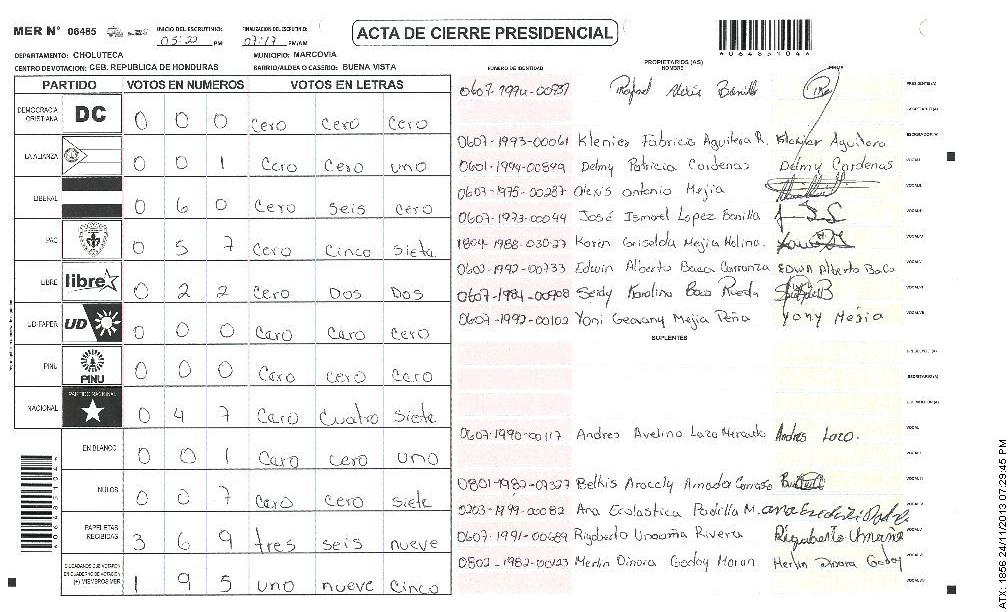 MER N° 06485 INICIO DEL ESCRUTINIO: 05:22 PM FINALIZACION DEL ESCRUTINIO: 07:17 PM/AM ACTA DE CIERRE PRESIDENCIAL
DEPARTAMENTO: CHOLUTECA MUNICIPIO: MARCOVIA
CENTRO DE VOTACION: CEB. REPUBLICA DE HONDURAS BARRIO/ALDEA O CASERIO: BUENA VISTA
PARTIDO VOTOS EN NUMEROS VOTOS EN LETRAS
DEMOCRACIA CRISTIANA DC 0 0 0 Cero Cero Cero
LA ALIANZA 0 0 1 Cero Cero uno
LIBERAL 0 6 0 Cero seis cero
PAC 0 5 7 Cero Cinco siete
LIBRE libre 0 2 2 Cero Dos Dos
UD-FAPER UD 0 0 0 Cero Cero Cero
PINU PINU 0 0 0 Cero cero Cero
NACIONAL PARTIDO NACIONAL 0 4 7 Cero Cuatro siete
EN BLANCO 0 0 1 Cero cero uno
NULOS 0 0 7 Cero cero siete
PAPELETAS RECIBIDAS 3 6 9 tres seis nueve
CIUDADANOS QUE VOTARON EN CUADERNO DE VOTACION (+) MIEMBROS MER 1 9 5 uno nueve Cinco
NUMERO DE IDENTIDAD PROPIETARIOS (AS) NOMBRE FIRMA
Rafael Alexis Bonilla
0607-1993-00061 Klenier Fabricio Aguilera R. Klenier Aguilera
0601-1994-00899 Delmy Patricia Cardenas Delmy Cardenas
0607-1975-00287 Alexis Antonio Mejia
0607-1973-00044 José Ismael Lopez Bonilla
1804-1988-03027 Karen Griselda Mejia Molina.
0602-1992-00733 Edwin Alberto Baca Carranza Edwin Alberto Baca
0607-1984-00908 Seidy Karolina Baca Rueda
0607-1992-00102 Yoni Geovany Mejia Peña Yony Mejia
SUPLENTES
0607-1990-00117 Andres Avelino Lazo Mercado Andres Lazo.
0801-1982-07327 Belkis Aracely Amada
0203-1999-00082 Ana Ecolastica Padilla M.
0607-1991-00689 Rigoberto Umaña Rivera Rigoberto Umaña
0502-1982-00123 Merlin Dinora Godoy Moran Merlin Dinora Godoy
ATX: 1856 24/11/2013 07:29:45 PM